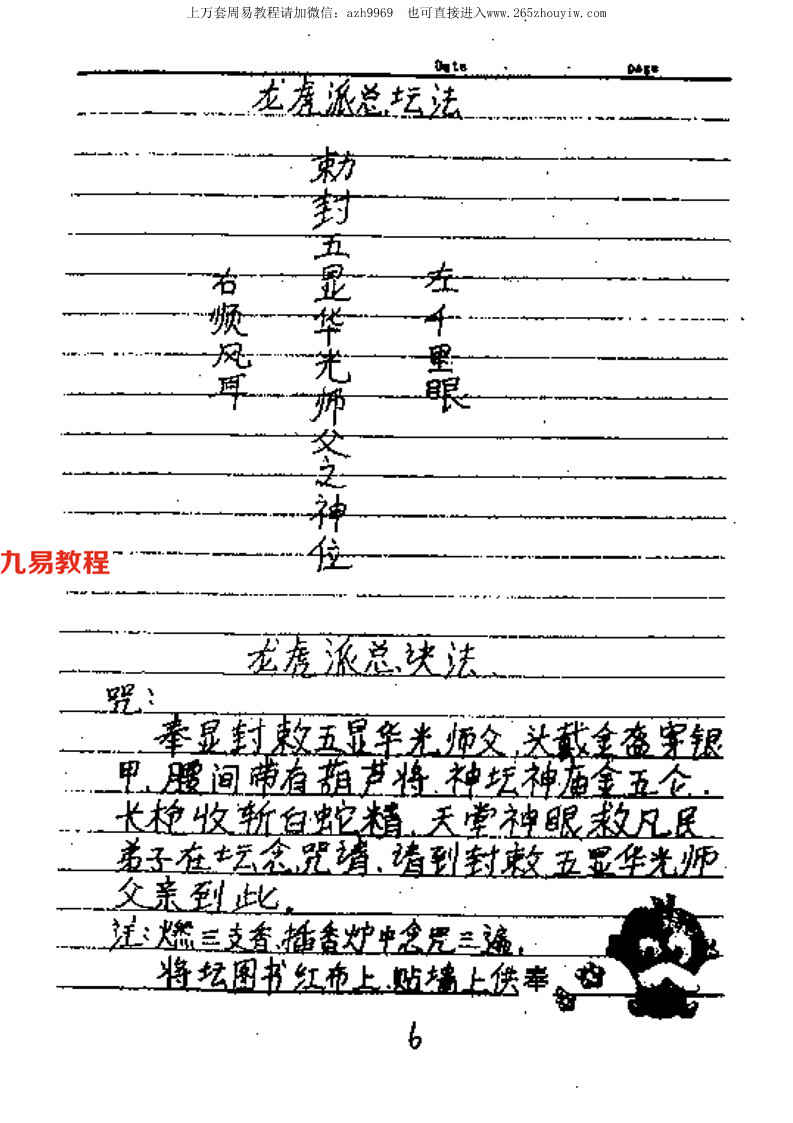 上万套周易教程请加微信：azh9969　也可直接进入www.265zhouyiw.com
Date
Page
龙虎派总坛法
勅封五显华光师父之神位
左千里眼
右顺风耳
九易教程
龙虎派总决法
咒：
奉显封敕五显华光师父，头戴金盔穿银
甲、腰间带有葫芦将、神坛神庙金五仑．
长枪收斩白蛇精、天堂神眼救凡民
弟子在坛念咒请、请到封敕五显华光师
父亲到此。
注：燃三支香、插香炉中念咒三遍，
将坛图书红布上、贴墙上供奉
6